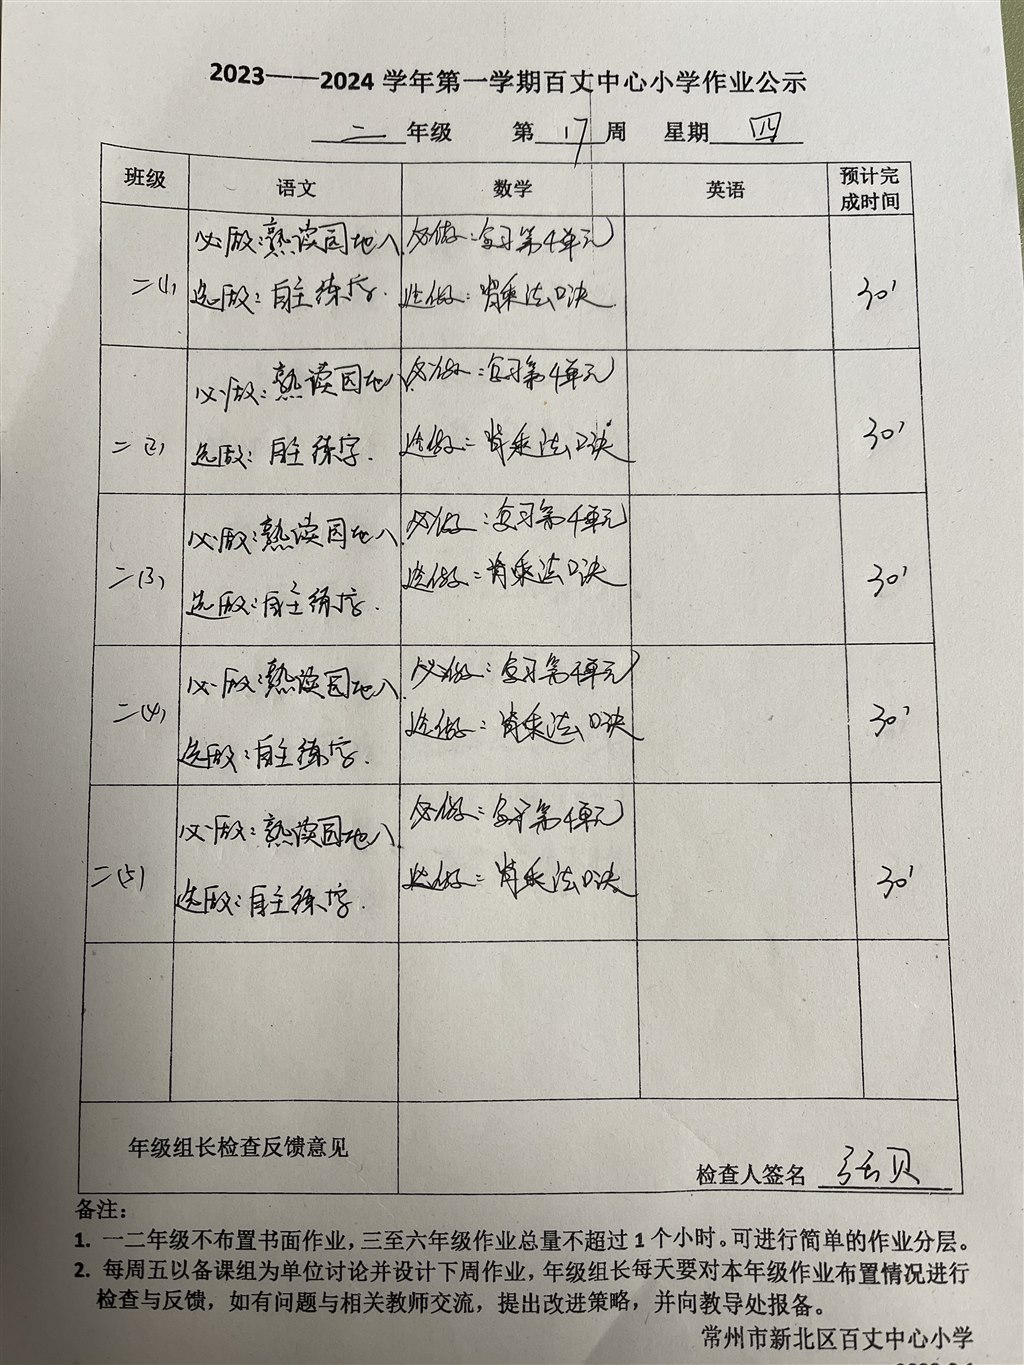 2023——2024 学年第一学期百丈中心小学作业公示
二 年级 第 17 周 星期 四
班级 语文 数学 英语 预计完成时间
二(1) 必做:熟读园地八. 必做:复习第4单元 30'
选做:自主练字. 选做:背乘法口诀
二(2) 必做:熟读园地八. 必做:复习第4单元 30'
选做:自主练字. 选做:背乘法口诀
二(3) 必做:熟读园地八. 必做:复习第4单元 30'
选做:自主练字. 选做:背乘法口诀
二(4) 必做:熟读园地八. 必做:复习第4单元 30'
选做:自主练字. 选做:背乘法口诀
二(5) 必做:熟读园地八. 必做:复习第4单元 30'
选做:自主练字. 选做:背乘法口诀
年级组长检查反馈意见
检查人签名 张贝
备注:
1. 一二年级不布置书面作业,三至六年级作业总量不超过 1 个小时。可进行简单的作业分层。
2. 每周五以备课组为单位讨论并设计下周作业,年级组长每天要对本年级作业布置情况进行
检查与反馈,如有问题与相关教师交流,提出改进策略,并向教导处报备。
常州市新北区百丈中心小学